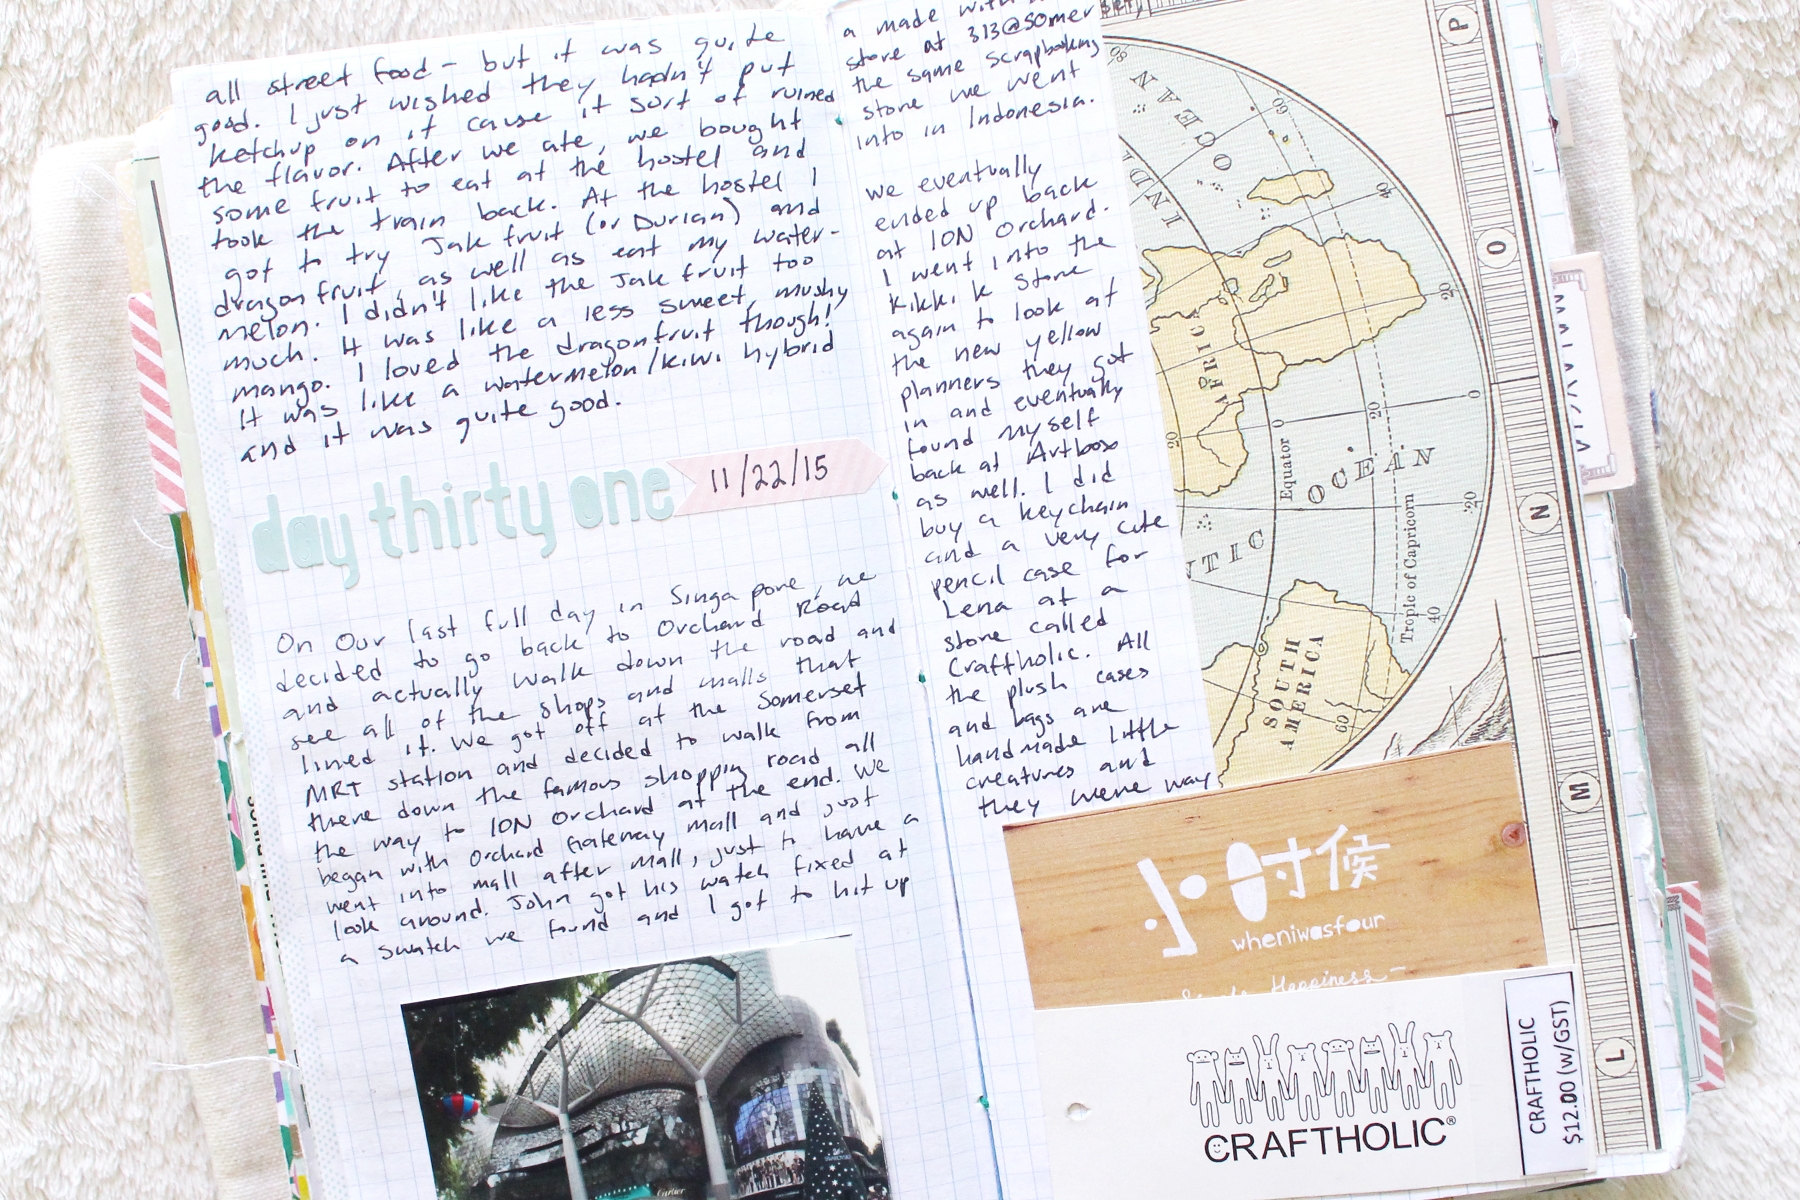 all street food - but it was quite
good. I just wished they hadn't put
ketchup on it cause it sort of ruined
the flavor. After we ate, we bought
some fruit to eat at the hostel and
took the train back. At the hostel I
got to try Jak fruit (or Durian) and
dragon fruit, as well as eat my water-
melon. I didn't like the Jak fruit too
much. It was like a less sweet, mushy
mango. I loved the dragonfruit though!
It was like a watermelon/kiwi hybrid
and it was quite good.
day thirty one
11/22/15
On our last full day in Singapore, we
decided to go back to Orchard Road
and actually walk down the road and
see all of the shops and malls that
lined it. We got off at the Somerset
MRT station and decided to walk from
there down the famous shopping road all
the way to ION Orchard at the end. We
began with Orchard Gateway mall and just
went into mall after mall, just to have a
look around. John got his watch fixed at
a swatch we found and I got to hit up
Cartier
a made with
store at 313@Somer
the same scrapbooking
store we went
into in Indonesia.
we eventually
ended up back
at ION Orchard.
I went into the
Kikki K Store
again to look at
the new yellow
planners they got
in and eventually
found myself
back at Artbox
as well. I did
buy a keychain
and a very cute
pencil case for
Lena at a
store called
Craftholic. All
the plush cases
and bags are
handmade little
creatures and
they were way
INDI
OCEAN
AFRICA
Equator
OCEAN
NTIC
Tropic of Capricorn
SOUTH
AMERICA
60
40
20
0
20
40
60
20
0
20
P
O
N
M
L
小时候
wheniwasfour
Happiness
CRAFTHOLIC®
CRAFTHOLIC
$12.00 (w/GST)